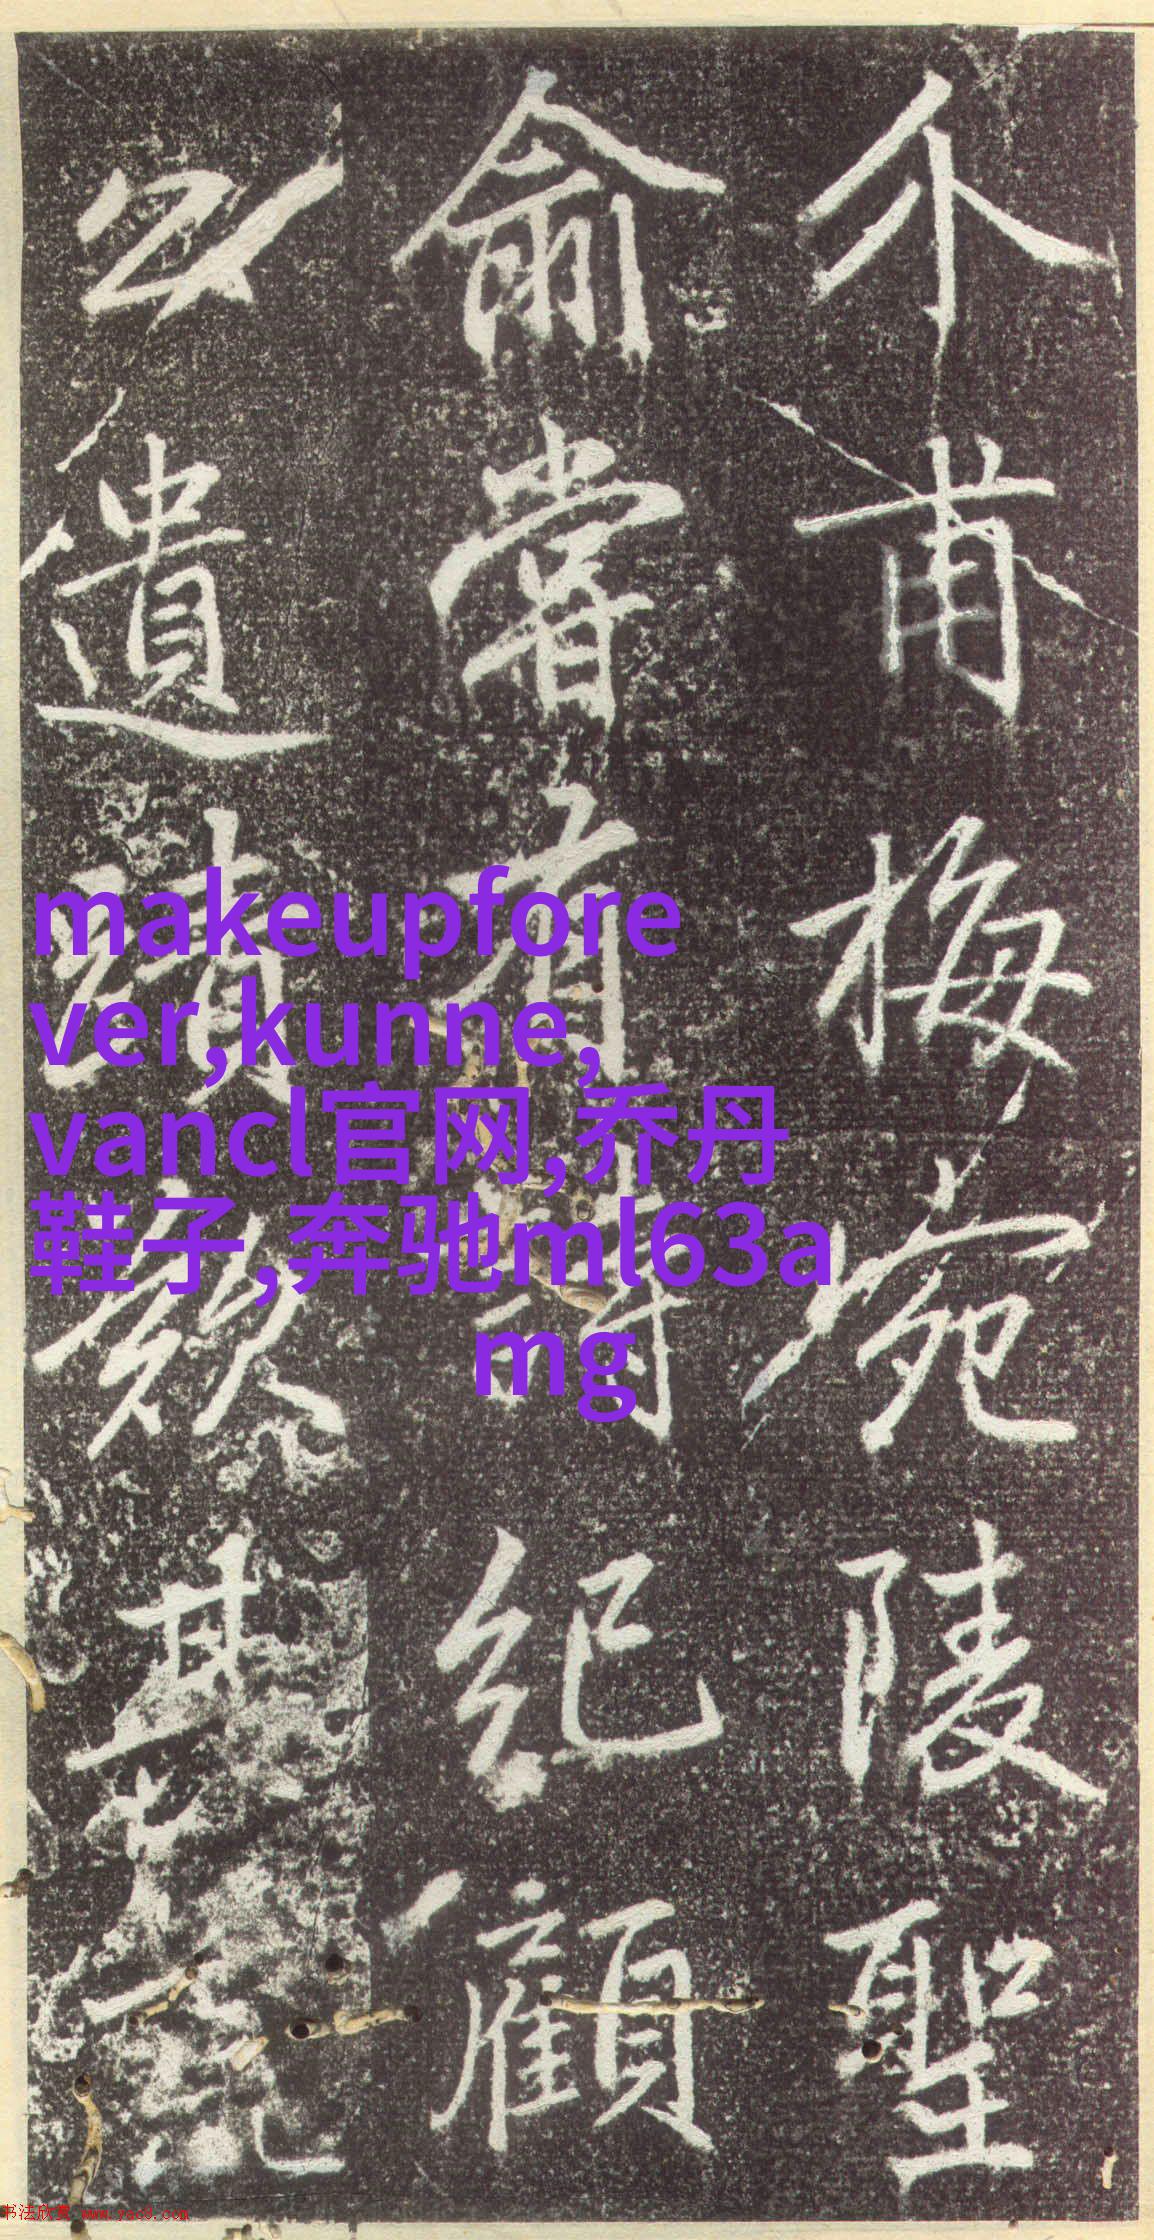 介甫梅宛陵聖
俞嘗有詩紀顧
公遺蹟
makeupfore
ver,kunne,
vancl官网,乔丹
鞋子,奔驰ml63a
mg
书法欣赏 www.yac8.com